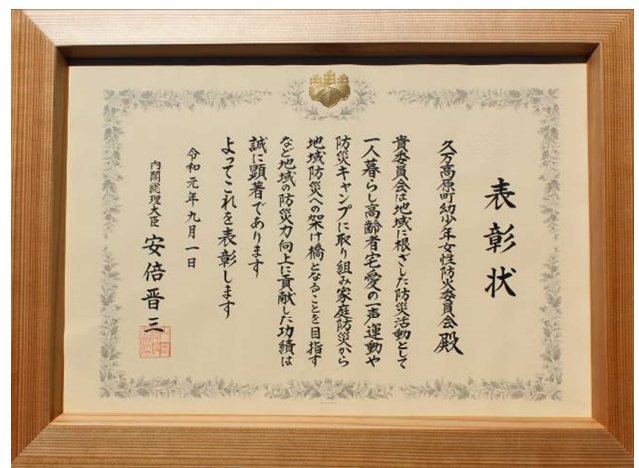 表彰状
久万高原町幼少年女性防火委員会 殿
貴委員会は地域に根ざした防災活動として
一人暮らし高齢者宅愛の一声運動や
防災キャンプに取り組み家庭防災から
地域防災への架け橋となることを目指す
など地域の防災力向上に貢献した功績は
誠に顕著であります
よってこれを表彰します
令和元年九月一日
内閣総理大臣 安倍晋三